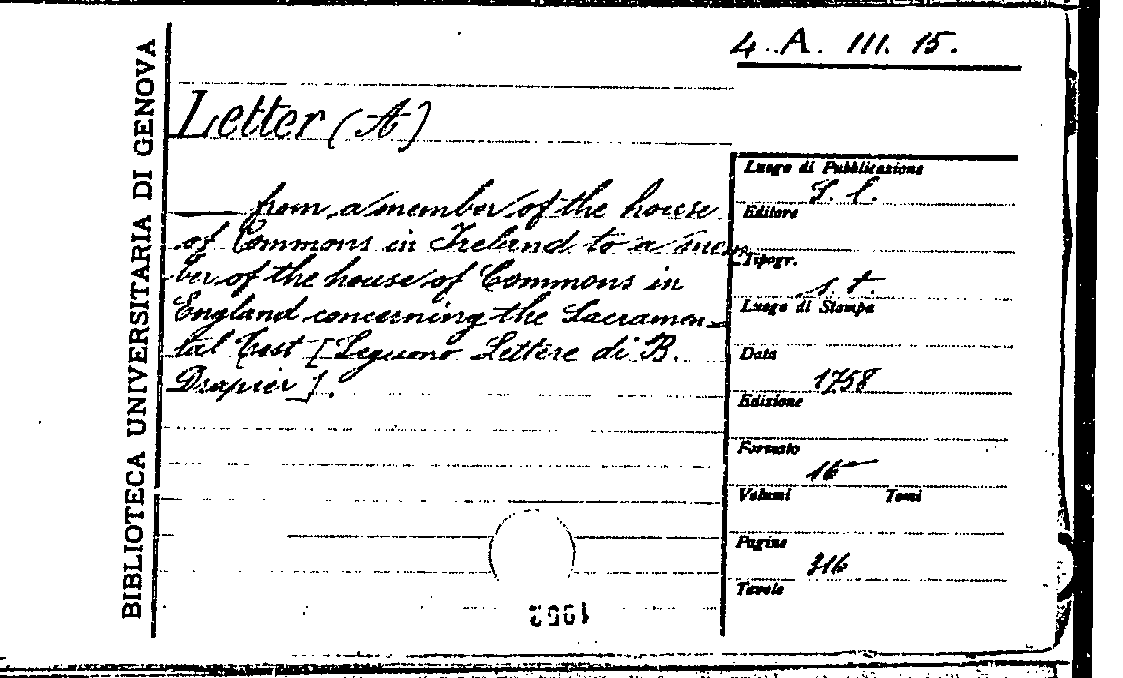 4. A. III. 15.
BIBLIOTECA UNIVERSITARIA DI GENOVA
Letter (A)
from a member of the house
of Commons in Ireland to a mem
ber of the house of Commons in
England concerning the Sacramen-
tal Test [Seguono Lettere di B.
Drapier].
Luogo di Pubblicazione
S. l.
Editore
Tipogr.
s. t.
Luogo di Stampa
Data
1758
Edizione
Formato
16
Volumi Tomi
Pagine
316
Tavole
1952